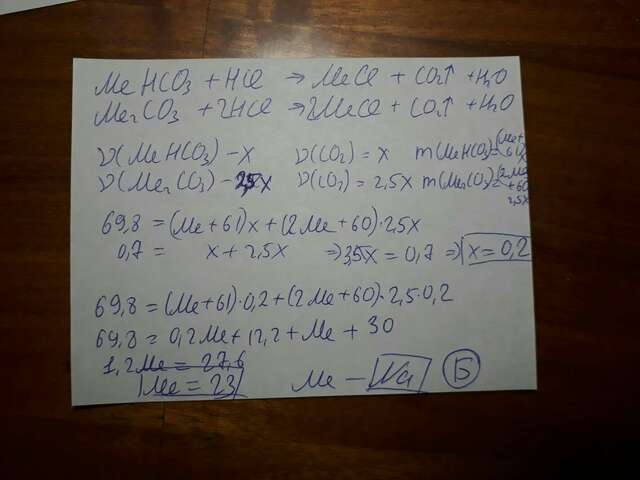 MeHCO3 + HCl → MeCl + CO2↑ + H2O
Me2CO3 + 2HCl → 2MeCl + CO2↑ + H2O
ν(MeHCO3) – x ν(CO2) = x m(MeHCO3)=(Me+61)x
ν(Me2CO3) – 2,5x ν(CO2) = 2,5x m(Me2CO3)=(2Me+60)2,5x
69,8 = (Me+61)x + (2Me+60)·2,5x
0,7 = x + 2,5x ⇒ 3,5x = 0,7 ⇒ x = 0,2
69,8 = (Me+61)·0,2 + (2Me+60)·2,5·0,2
69,8 = 0,2Me + 12,2 + Me + 30
1,2Me = 27,6
Me = 23 Me – Na Б